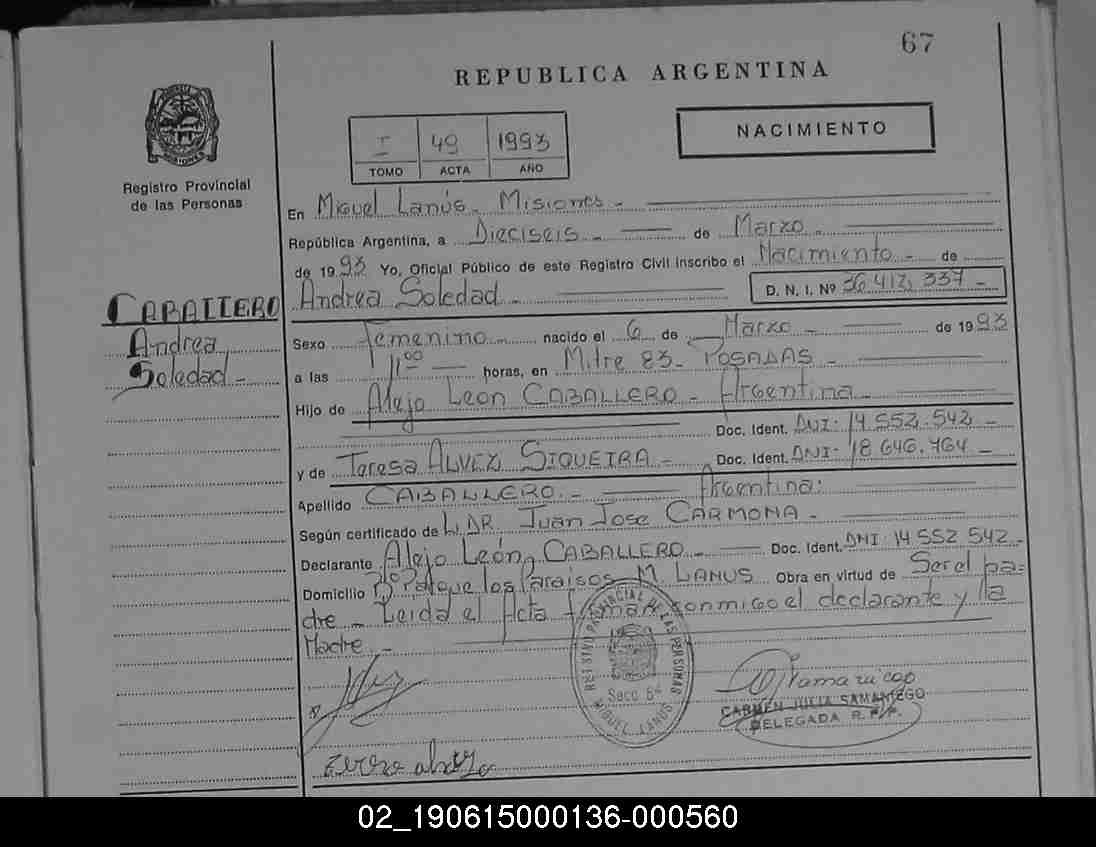 67
REPUBLICA ARGENTINA
NACIMIENTO
I 49 1993
TOMO ACTA AÑO
Registro Provincial
de las Personas
En Miguel Lanús - Misiones -
República Argentina, a Dieciseis - de Marzo -
de 1993 Yo, Oficial Público de este Registro Civil inscribo el Nacimiento - de
Andrea Soledad - D. N. I. Nº 36.412.337 -
CABALLERO
Andrea
Soledad -
Sexo Femenino - nacido el 6 de Marzo - de 1993
a las 11 00 horas, en Mitre 83 - POSADAS -
Hijo de Alejo León CABALLERO - Argentina -
Doc. Ident. DNI - 14.552.542 -
y de Teresa ALVEZ SIQUEIRA - Doc. Ident. DNI - 18.646.764 -
Apellido CABALLERO. - Argentina:
Según certificado de DR. Juan Jose CARMONA -
Declarante Alejo León CABALLERO - Doc. Ident. DNI 14 552 542 -
Domicilio Bº Parque los Paraisos M. LANUS Obra en virtud de Ser el pa-
dre - Leida el Acta firman conmigo el declarante y la
Madre. -
REGISTRO PROVINCIAL DE LAS PERSONAS
Secc. 6ª
MIGUEL LANUS
CARMEN JULIA SAMANIEGO
DELEGADA R. P. P.
02_190615000136-000560